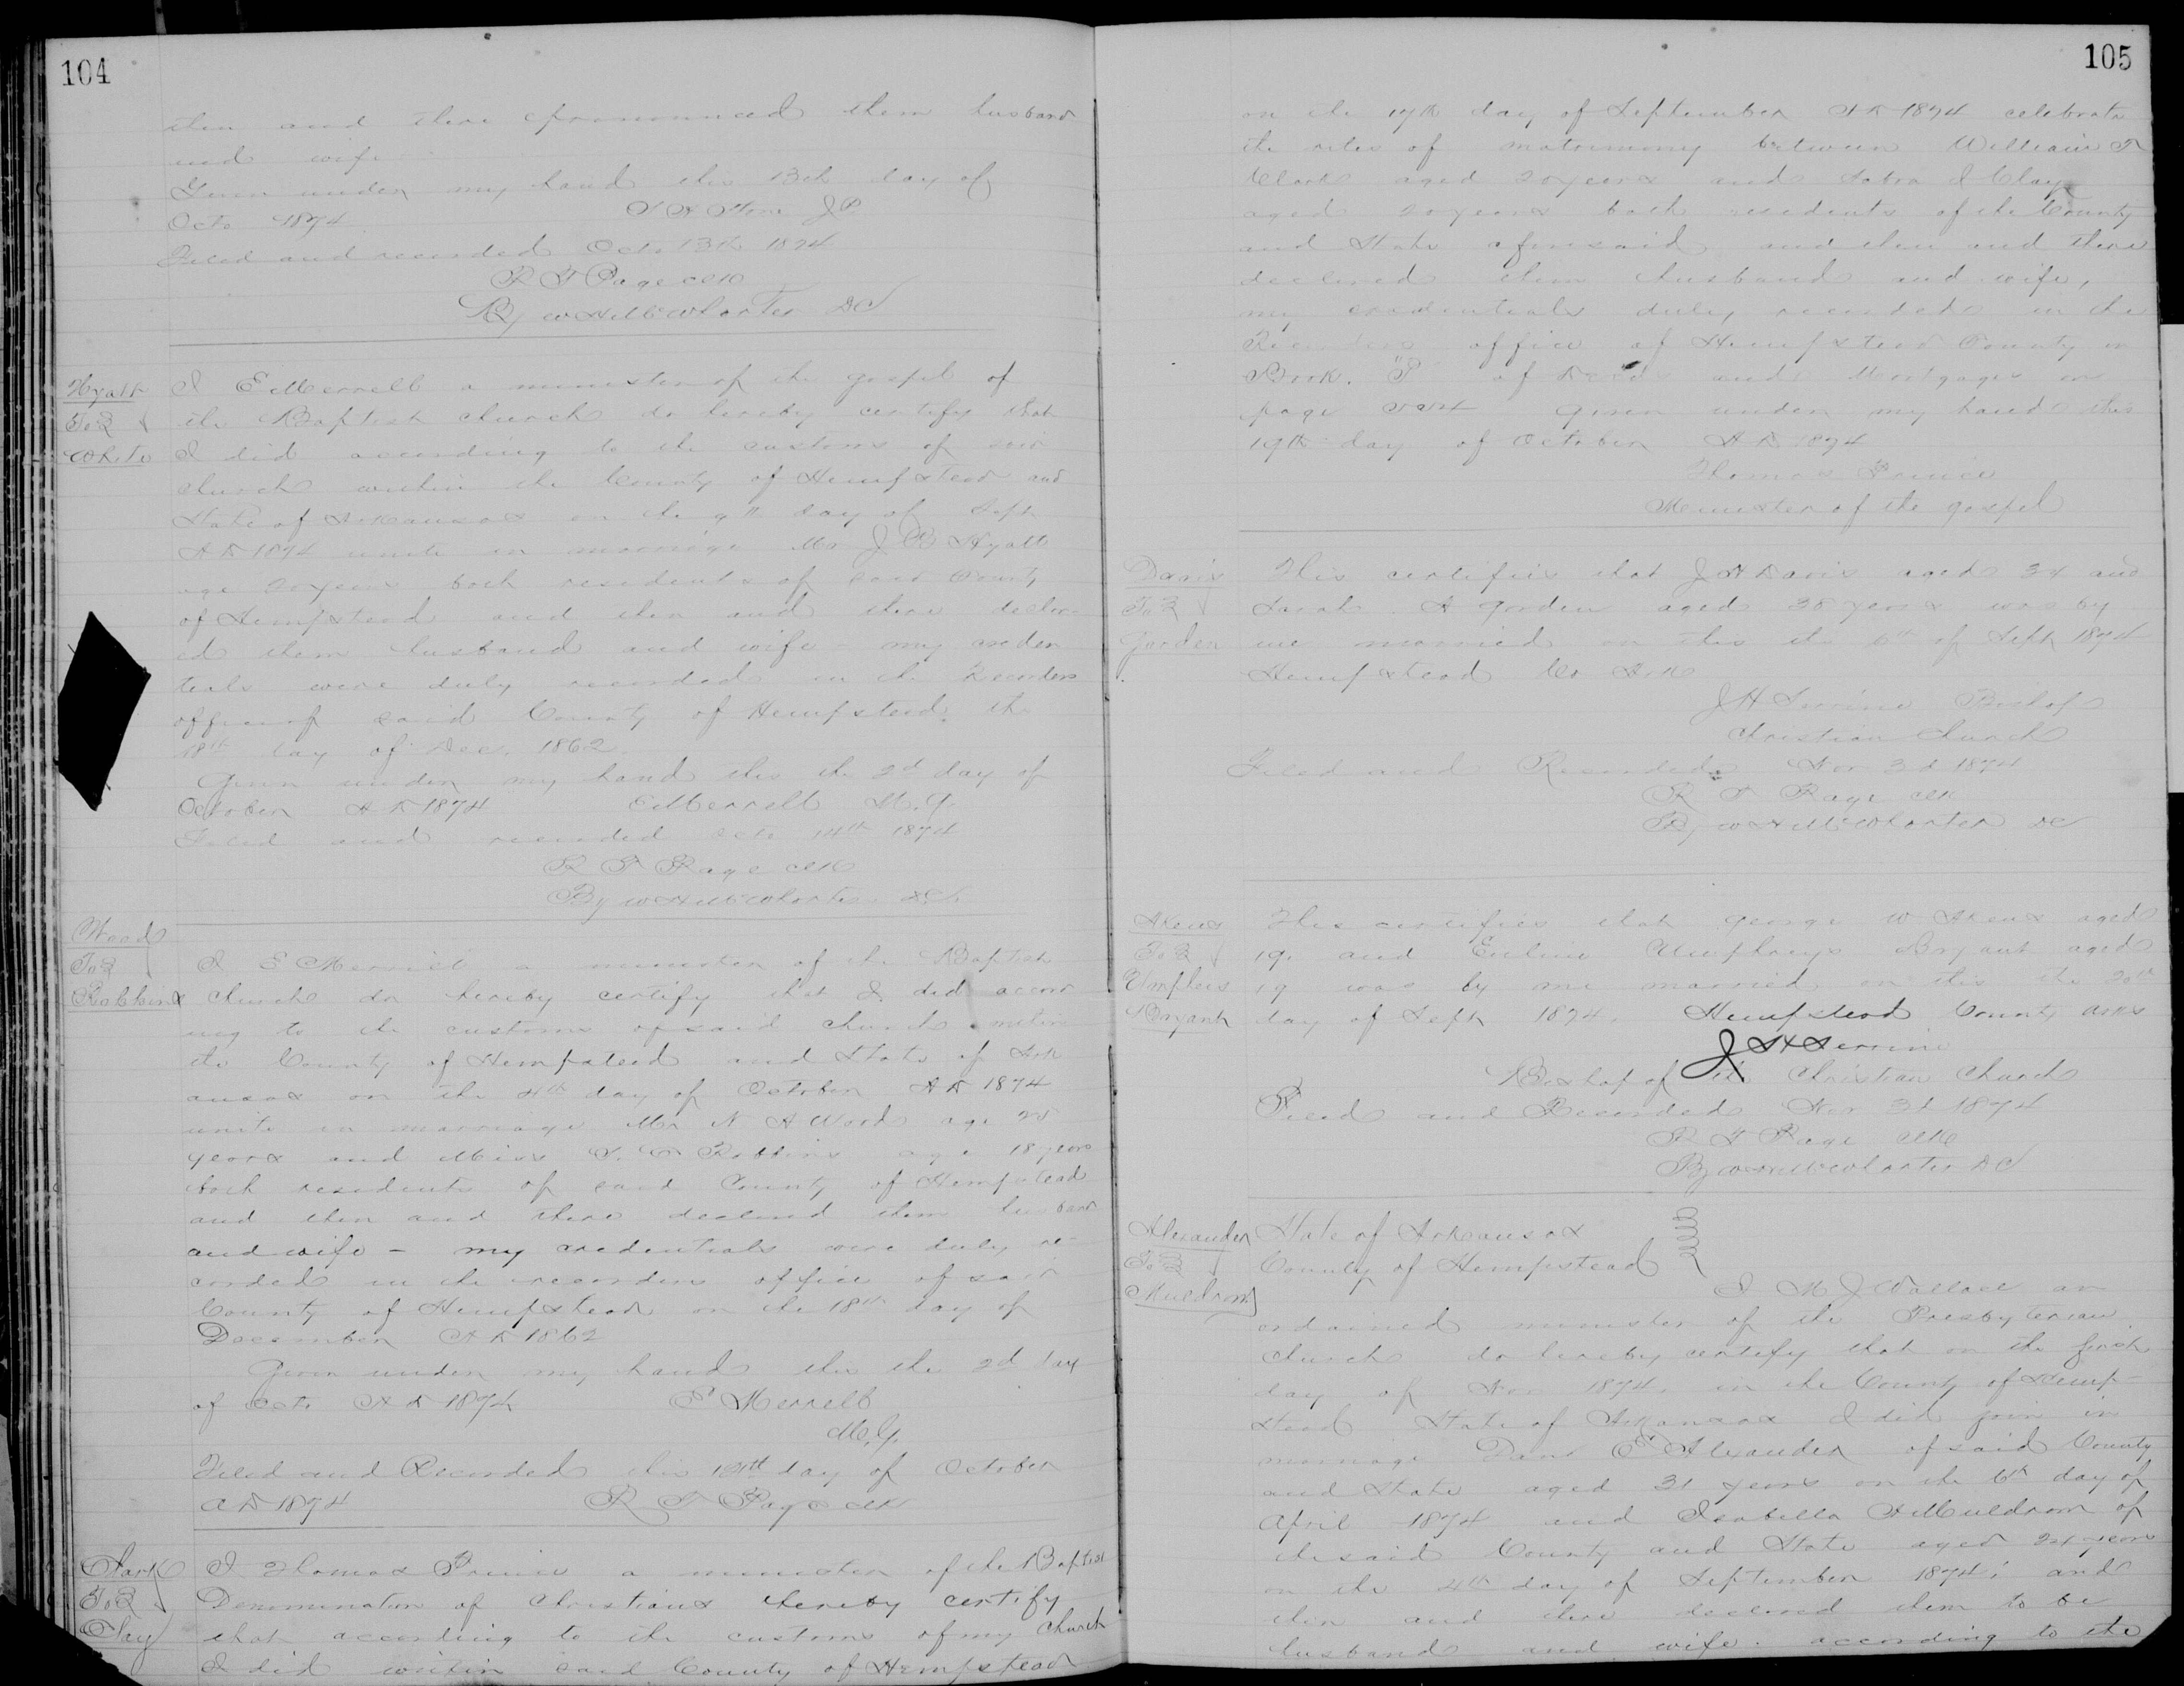 104
then and there pronounced them husband
and wife
Given under my hand this 13th day of
Octo 1874 J P
Filed and recorded Octo 13th 1874
R T Page clk
By W H McWhorter DC
Hyatt
To
White
I E Merrell a minister of the gospel of
the Baptist church do hereby certify that
I did according to the customs of said
church within the County of Hempstead and
State of Arkansas on the 9th day of Sept
A D 1874 unite in marriage Mr J B Hyatt
age 20 years both residents of said County
of Hempstead and then and there declar-
ed them husband and wife - my creden
tials were duly recorded in the Recorders
office of said County of Hempstead the
18th day of Dec. 1862
Given under my hand this the 2d day of
October A D 1874 E Merrell M.G.
Filed and recorded Octo 14th 1874
R T Page clk
By W H McWhorter D.C.
Wood
To
Robbins
I E Merrell a minister of the Baptist
church do hereby certify that I did accord
ing to the customs of said church within
the County of Hempstead and State of Ark
ansas on the 4th day of October A D 1874
unite in marriage Mr N A Wood age 25
years and Miss Robbins age 18 years
both residents of said County of Hempstead
and then and there declared them husband
and wife - my credentials were duly re-
corded in the recorders office of said
County of Hempstead on the 18th day of
December A D 1862
Given under my hand this the 2d day
of Octo A D 1874 E Merrell
M.G.
Filed and Recorded this 14th day of October
A D 1874 R T Page clk
Clark
To
Clay
I Thomas Prince a minister of the Baptist
Denomination of Christians hereby certify
that according to the customs of my church
I did within said County of Hempstead
105
on the 17th day of September A D 1874 celebrate
the rites of matrimony between William T
Clark aged 20 years and Clay
aged 20 years both residents of the County
and State aforesaid and then and there
declared them husband and wife,
my credentials duly recorded in the
Recorders office of Hempstead County in
Book. "P" of Deeds and Mortgages on
page Given under my hand this
19th day of October A D 1874
Thomas Prince
Minister of the gospel
Davis
To
Gorden
This certifies that J A Davis aged 34 and
Sarah A Gorden aged 38 years was by
me married on this the 6th of Sept 1874
Hempstead Co Ark
J H Serrine Bishop
Christian Church
Filed and Recorded Nov 3d 1874
R T Page clk
By W H McWhorter DC
Akens
To
Umphres
Bryant
This certifies that George W Akens aged
19. and Umphreys Bryant aged
19 was by me married on this the 20th
day of Sept 1874. Hempstead County Arks
J H Serrine
Bishop of the Christian Church
Filed and Recorded Nov 3d 1874
R T Page clk
By W H McWhorter DC
Alexander
To
Muldrom
State of Arkansas
County of Hempstead
I M J Wallace an
ordained minister of the Presbyterian
church do hereby certify that on the first
day of Nov 1874. in the County of Hemp-
stead State of Arkansas I did join in
marriage Alexander of said County
and State aged 31 years on the 6th day of
April 1874 and Isabella A Muldrom of
the said County and State aged 24 years
on the 4th day of September 1874; and
then and there declared them to be
husband and wife. according to the